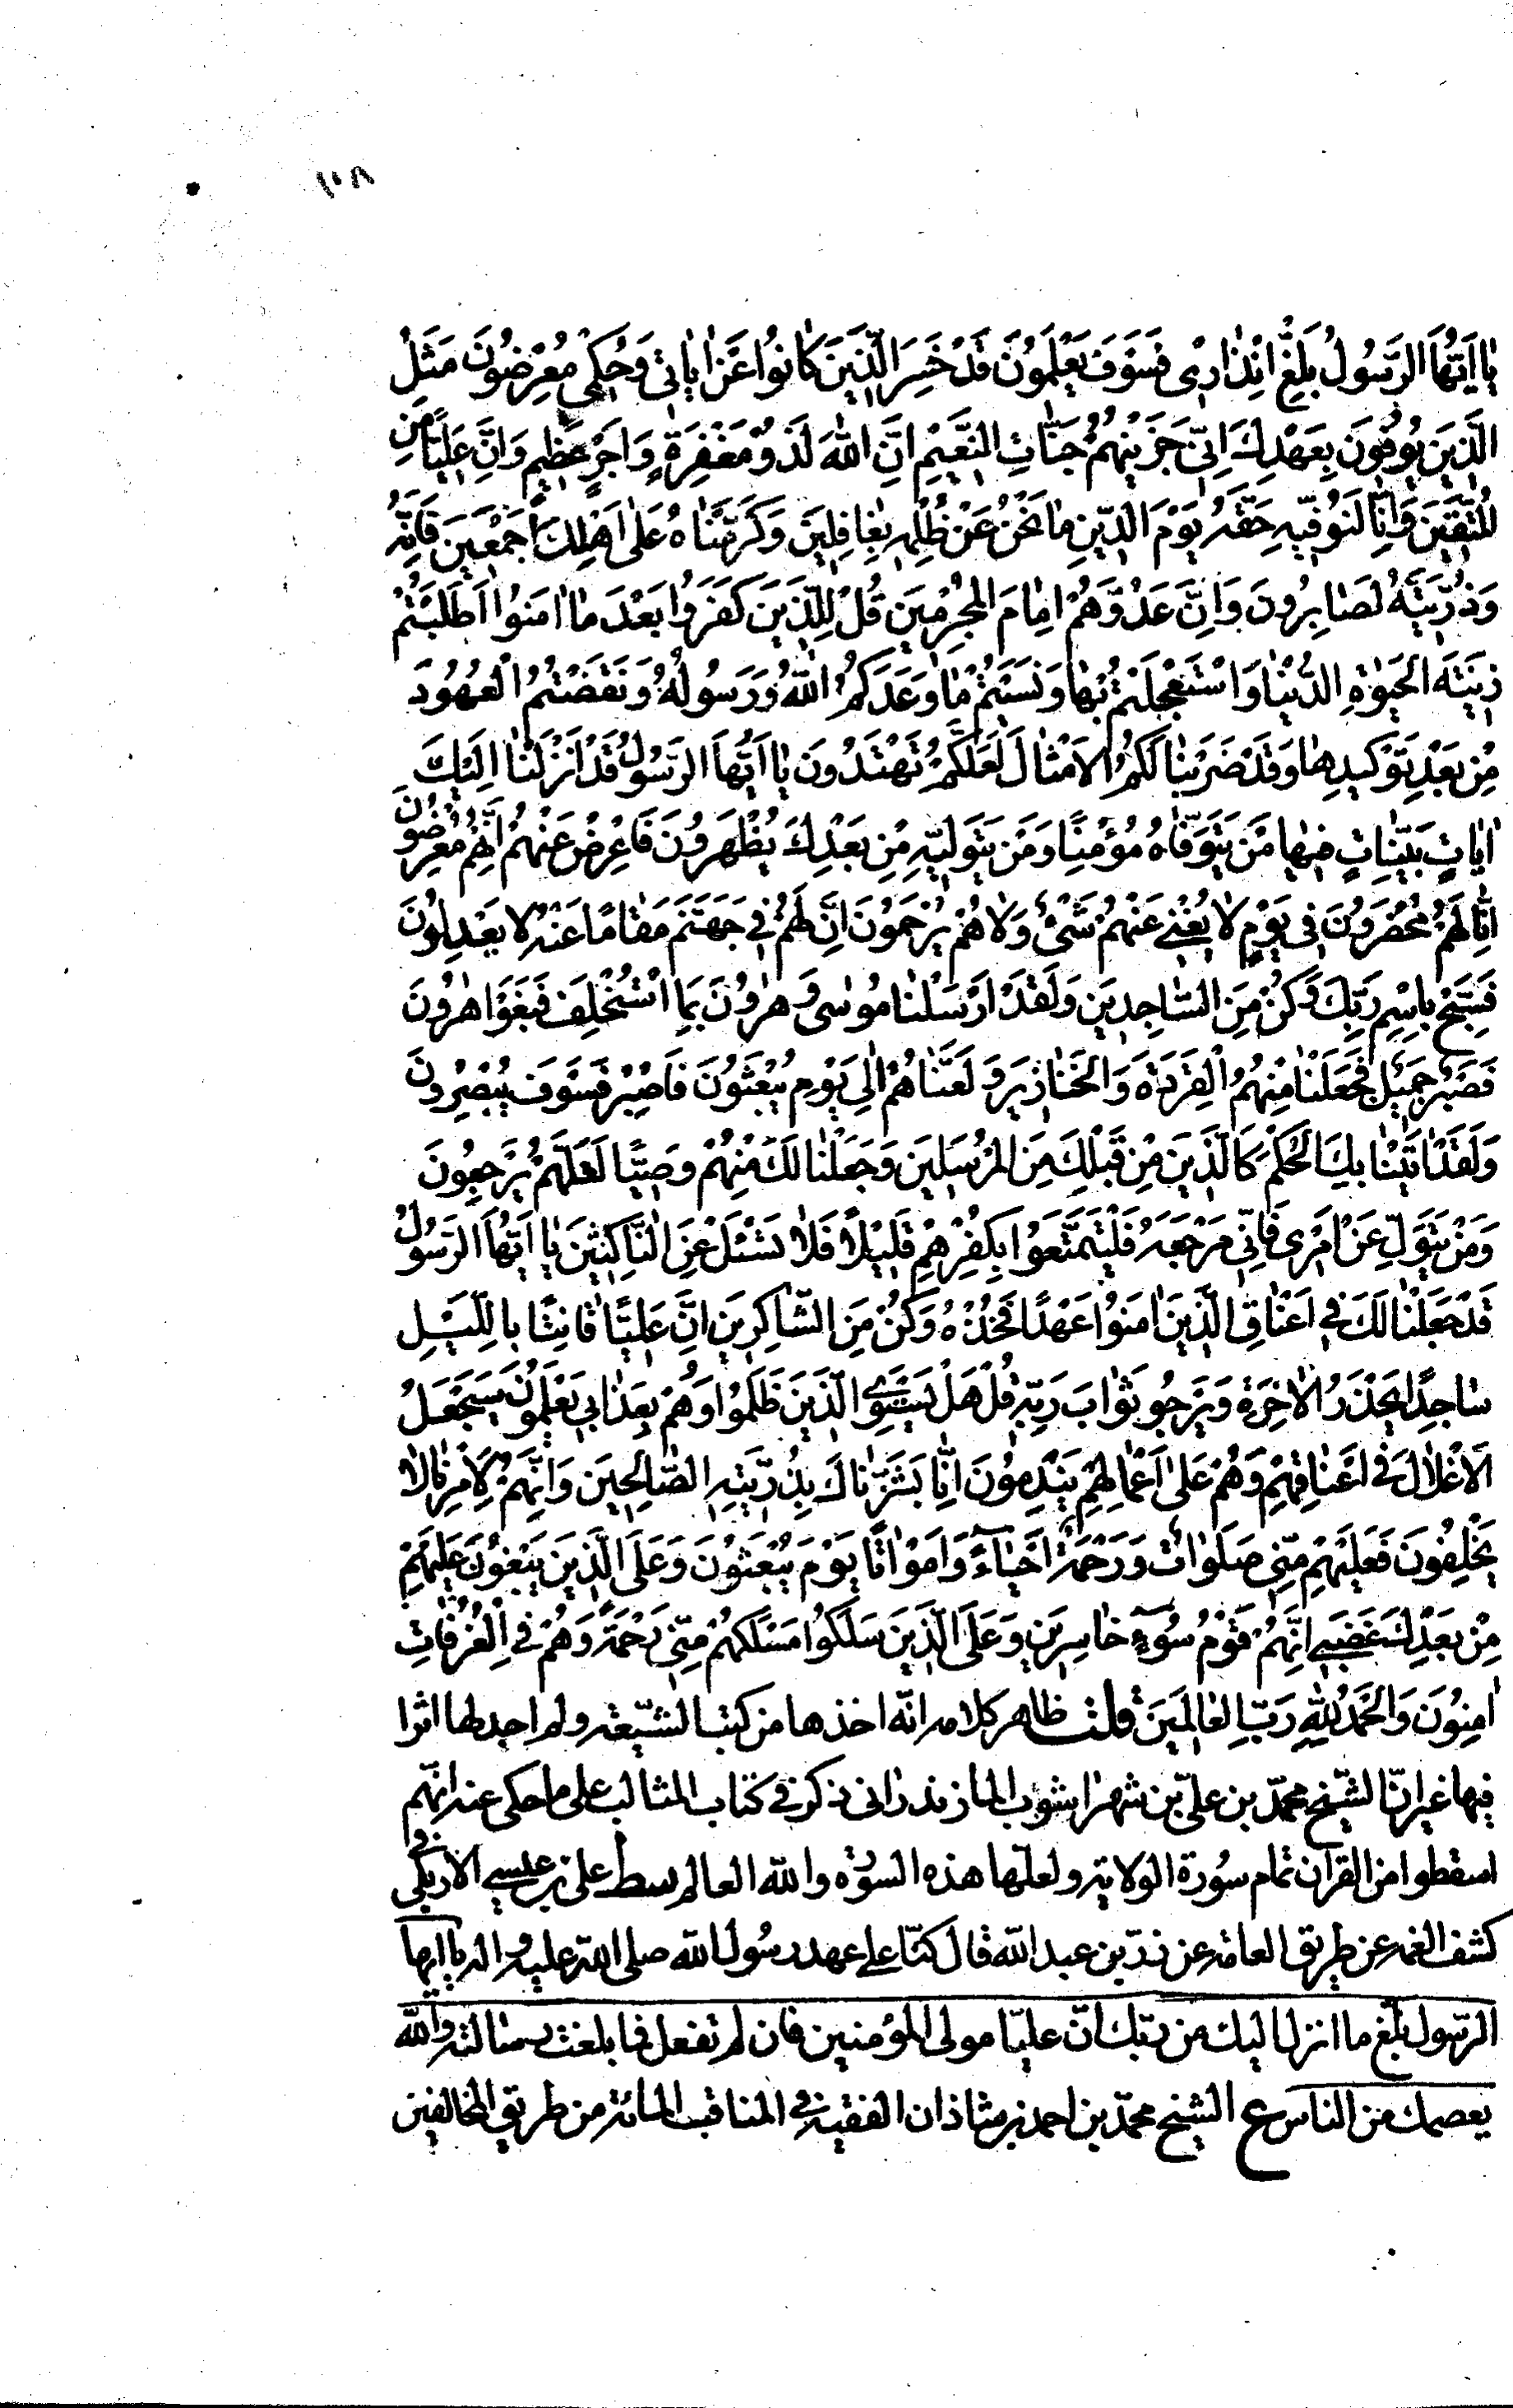 ١٠٨
يٰا اَيُّهَا الرَّسُولُ بَلِّغْ اِنْذٰارِى فَسَوْفَ يَعْلَمُونَ قَدْ خَسِرَ الَّذِينَ كٰانوُا عَنْ اٰيٰاتى وَحُكْمِى مُعْرِضُونَ مَثَلُ
الَّذِينَ يوُفوُنَ بِعَهْدِكَ اِنّى جَزَيْتُهُمْ جَنّٰاتِ النَّعيٖمِ اِنَّ اللّٰهَ لَذوُ مَغْفِرَةٍ وَاَجْرٍ عَظيٖمٍ وَاِنَّ عَلِيًّا مِنَ
المُتَّقيٖنَ وَاِنّٰا لَنُوَفّيٖهِ حَقَّهُ يَوْمَ الدّيٖنِ مٰا نَحْنُ عَنْ ظُلْمِهِ بِغٰافِليٖنَ وَكَرَّمْنٰاهُ عَلىٰ اَهْلِكَ اَجْمَعيٖنَ فَاِنَّهُ
وَذُرِّيَّتَهُ لَصٰابِرُونَ وَاِنَّ عَدُوَّهُمْ اِمٰامَ المُجْرِميٖنَ قُلْ لِلَّذيٖنَ كَفَرُوا بَعْدَ مٰا اٰمَنوُا اَطَلَبْتُمْ
زيٖنَةَ الحَيٰوةِ الدُّنْيٰا وَاسْتَعْجَلْتُمْ بِهٰا وَنَسيٖتُمْ مٰا وَعَدَكُمُ اللّٰهُ وَرَسُولُهُ وَنَقَضْتُمُ العُهُودَ
مِنْ بَعْدِ تَوْكيدِهٰا وَقَدْ ضَرَبْنٰا لَكُمُ الاَمْثٰالَ لَعَلَّكُمْ تَهْتَدُونَ يٰا اَيُّهَا الرَّسُولُ قَدْ اَنْزَلْنٰا اِلَيْكَ
اٰيٰاتٍ بَيِّنٰاتٍ فيٖهٰا مَنْ يَتَوَفّٰاهُ مُؤْمِنًا وَمَنْ يَتَوَلّيٖهِ مِنْ بَعْدِكَ يُظْهَرُونَ فَاَعْرِضْ عَنْهُمْ اِنَّهُمْ مُعْرِضُونَ
اِنّٰا لَهُمْ مُحْضَرُونَ فِى يَوْمٍ لاٰ يُغْنيٖ عَنْهُمْ شَىْءٌ وَلاٰ هُمْ يُرْحَمُونَ اِنَّ لَهُمْ فِى جَهَنَّمَ مَقٰامًا عَنْهُ لا يَعْدِلوُنَ
فَسَبِّحْ بِاسْمِ رَبِّكَ وَكُنْ مِنَ السّٰاجِديٖنَ وَلَقَدْ اَرْسَلْنٰا مُوسٰى وَهٰرُونَ بِمَا اسْتُخْلِفَ فَبَغَوْا هٰرُونَ
فَصَبْرٌ جَميٖلٌ فَجَعَلْنٰا مِنْهُمُ القِرَدَةَ وَالخَنٰازيٖرَ وَلَعَنّٰاهُمْ اِلىٰ يَوْمِ يُبْعَثوُنَ فَاصْبِرْ فَسَوْفَ يُبْصِرُونَ
وَلَقَدْ اٰتَيْنٰا بِكَ الحُكْمَ كَالَّذيٖنَ مِنْ قَبْلِكَ مِنَ المُرْسَليٖنَ وَجَعَلْنٰا لَكَ مِنْهُمْ وَصِيًّا لَعَلَّهُمْ يَرْجِعُونَ
وَمَنْ يَتَوَلَّ عَنْ اَمْرى فَاِنّى مَرْجَعُهُ فَلْيَتَمَتَّعوُا بِكُفْرِهِمْ قَليٖلاً فَلاٰ تَسْئَلْ عَنِ النّٰاكِثيٖنَ يٰا اَيُّهَا الرَّسُولُ
قَدْ جَعَلْنٰا لَكَ فِى اَعْنٰاقِ الَّذيٖنَ اٰمَنوُا عَهْدًا فَخُذْهُ وَكُنْ مِنَ الشّٰاكِريٖنَ اِنَّ عَلِيًّا قٰانِتًا بِاللَّيْلِ
سٰاجِدًا يَحْذَرُ الاٰخِرَةَ وَيَرْجوُ ثَوٰابَ رَبِّهِ قُلْ هَلْ يَسْتَوِى الَّذيٖنَ ظَلَمُوا وَهُمْ بِعَذٰابى يَعْلَمُونَ سَيُجْعَلُ
الاَغْلاٰلَ فِى اَعْنٰاقِهِمْ وَهُمْ عَلىٰ اَعْمٰالِهِمْ يَنْدِمُونَ اِنّٰا بَشَّرْنٰاكَ بِذُرِّيَّتِهِ الصّٰالِحيٖنَ وَاِنَّهُمْ لِاَمْرِنٰا لاٰ
يُخْلِفُونَ فَعَلَيْهِمْ مِنّى صَلَوٰاتٌ وَرَحْمَةٌ اَحْيٰاءً وَاَمْوٰاتًا يَوْمَ يُبْعَثُونَ وَعَلَى الَّذيٖنَ يَبْغُونَ عَلَيْهِمْ
مِنْ بَعْدِكَ غَضَبى اِنَّهُمْ قَوْمُ سُوءٍ خٰاسِريٖنَ وَعَلَى الَّذيٖنَ سَلَكوُا مَسْلَكَهُمْ مِنّى رَحْمَةٌ وَهُمْ فِى الغُرُفٰاتِ
اٰمِنُونَ وَالحَمْدُ لِلّٰهِ رَبِّ العٰالَميٖنَ قلت ظاهر كلامه انّه اخذها من كتب الشيعة ولم اجد لها اثرا
فيها غير انّ الشيخ محمّد بن علىّ بن شهرآشوب المازندرانى ذكر فى كتاب المثالب على ما حكى عنه انّهم
اسقطوا من القرآن تمام سورة الولاية ولعلّها هذه السورة والله العالم سط على بن عيسى الاربلى فى
كشف الغمه عن طريق العامة عن زرّ بن عبد الله قال كنّا على عهد رسول الله صلى الله عليه واله يا ايها
الرّسول بلّغ ما انزل اليك من ربّك انّ عليّا مولى المؤمنين فان لم تفعل فما بلغت رسالته والله
يعصمك من الناس ع الشيخ محمّد بن احمد بن شاذان الفقيه فى المناقب المائة من طريق المخالفين